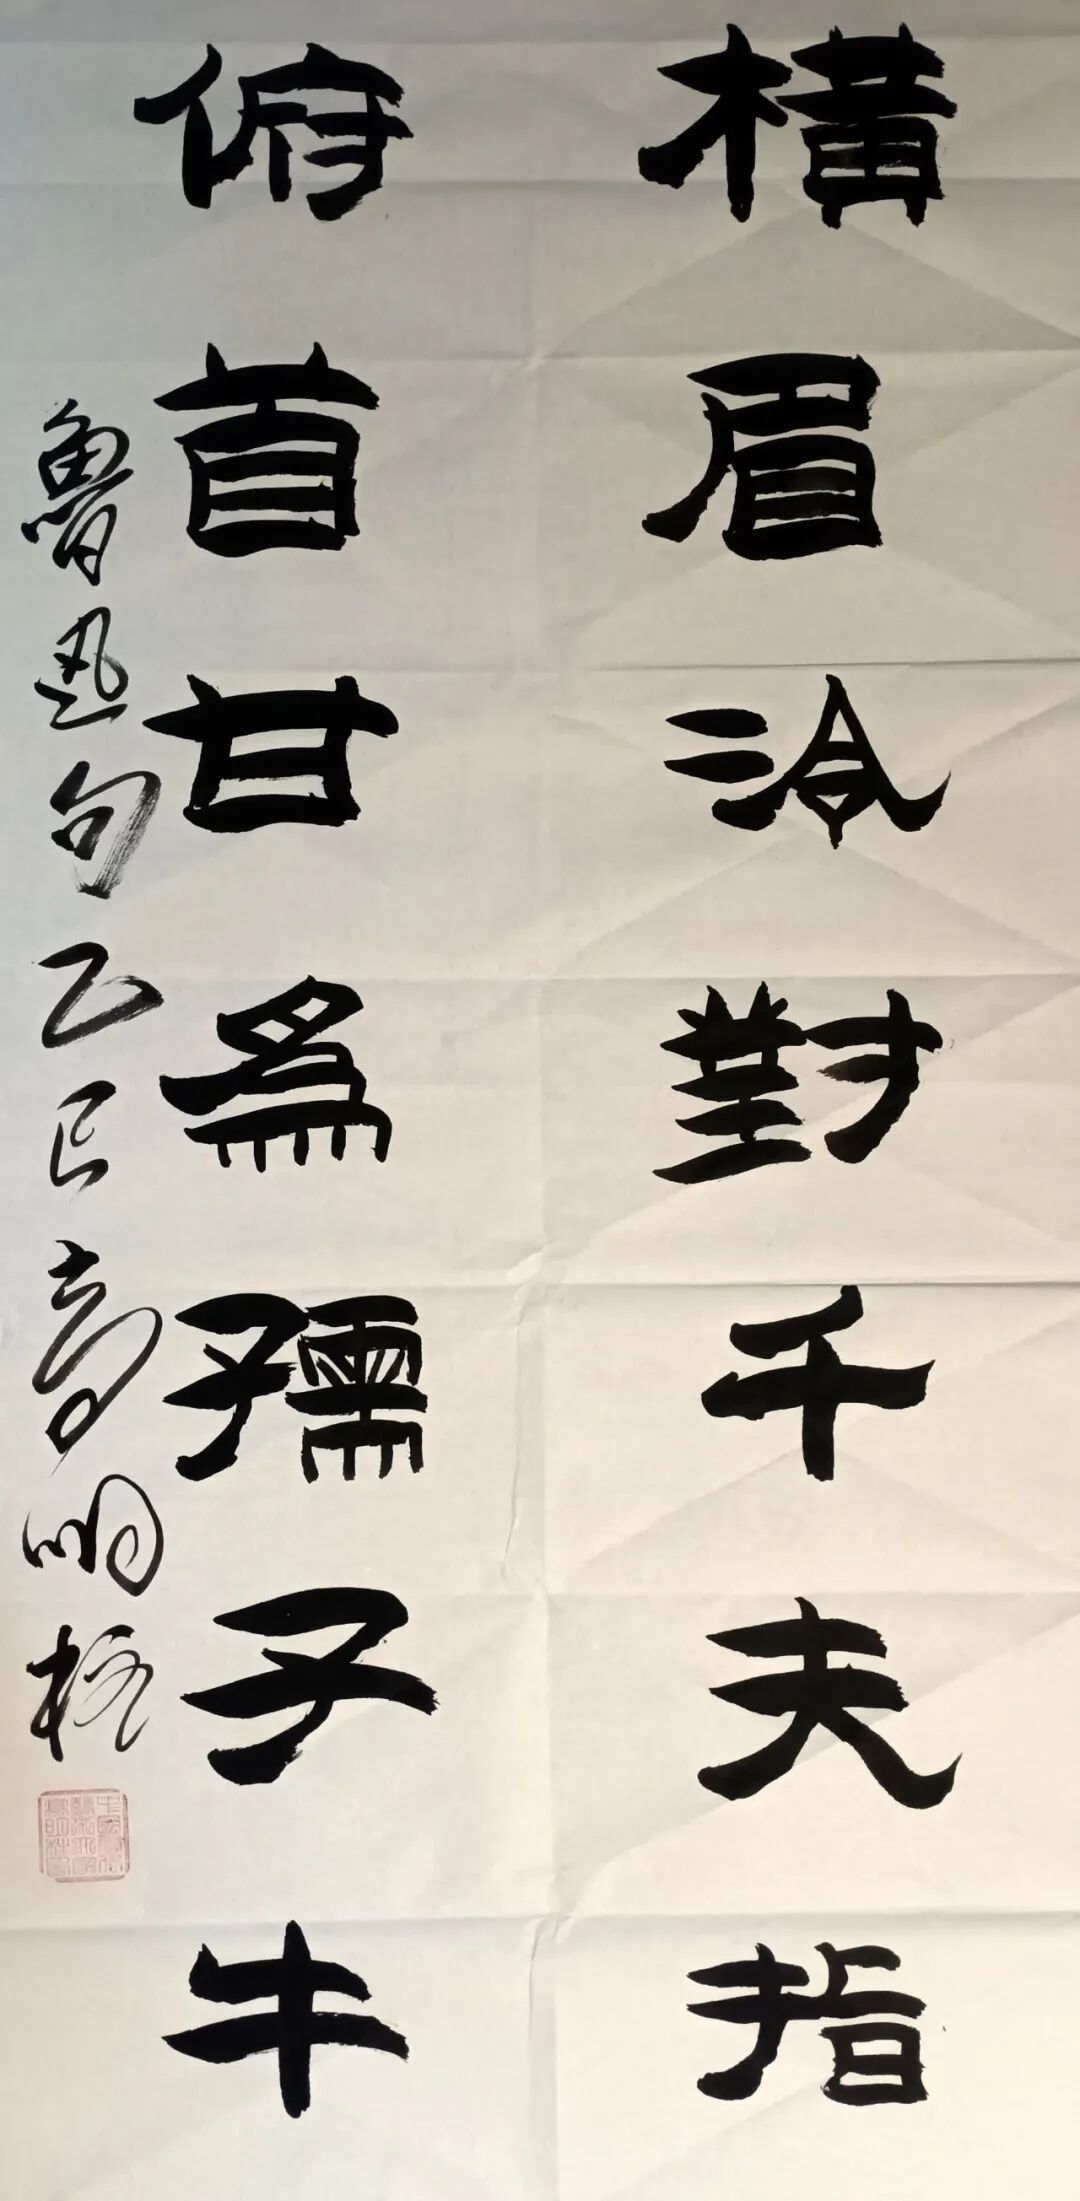 橫眉冷對千夫指
俯首甘為孺子牛
魯迅句乙巳高明柱